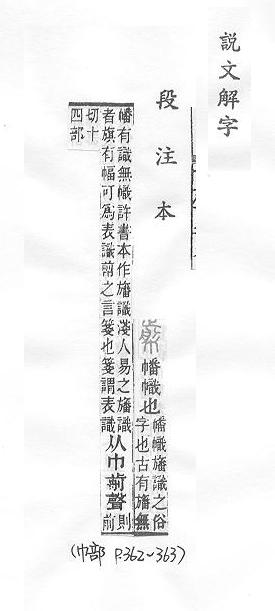 説文解字
段注本
幡幟也
幡幟旛識之俗
字也古有旛無
幡有識無幟許書本作旛識淺人易之旛識
者旗有幅可爲表識㡐之言箋也箋謂表識
从巾前聲
則
前
切十
四部
(巾部 P.362~363)